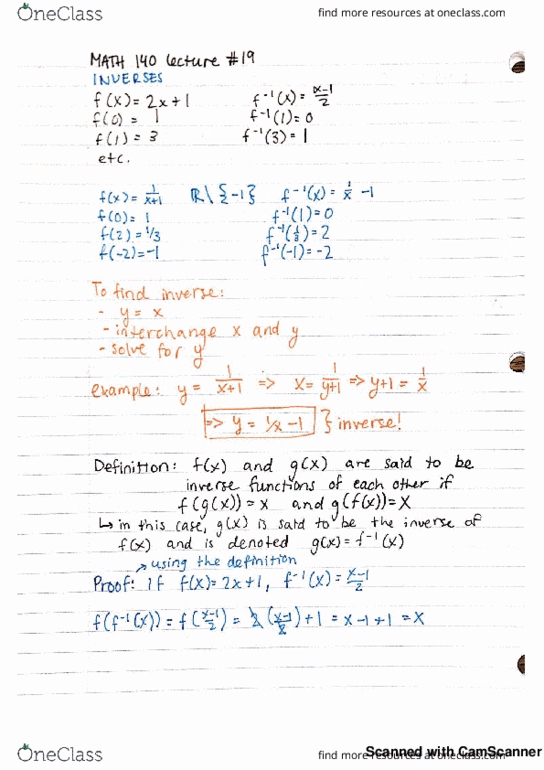 OneClass
find more resources at oneclass.com
MATH 140 Lecture #19
INVERSES
f(x) = 2x+1 f⁻¹(x) = x-1/2
f(0) = 1 f⁻¹(1) = 0
f(1) = 3 f⁻¹(3) = 1
etc.
f(x) = 1/x+1 ℝ\{-1} f⁻¹(x) = 1/x -1
f(0) = 1 f⁻¹(1) = 0
f(2) = 1/3 f⁻¹(1/3) = 2
f(-2) = -1 f⁻¹(-1) = -2
To find inverse:
- y = x
- interchange x and y
- solve for y
example: y = 1/x+1 => x = 1/y+1 => y+1 = 1/x
=> y = 1/x -1 } inverse!
Definition: f(x) and g(x) are said to be
inverse functions of each other if
f(g(x)) = x and g(f(x)) = x
↳ in this case, g(x) is said to be the inverse of
f(x) and is denoted g(x) = f⁻¹(x)
↗ using the definition
Proof: If f(x) = 2x+1, f⁻¹(x) = x-1/2
f(f⁻¹(x)) = f(x-1/2) = 2(x-1/2)+1 = x-1+1 = x
OneClass
find more resources at oneclass.com
Scanned with CamScanner